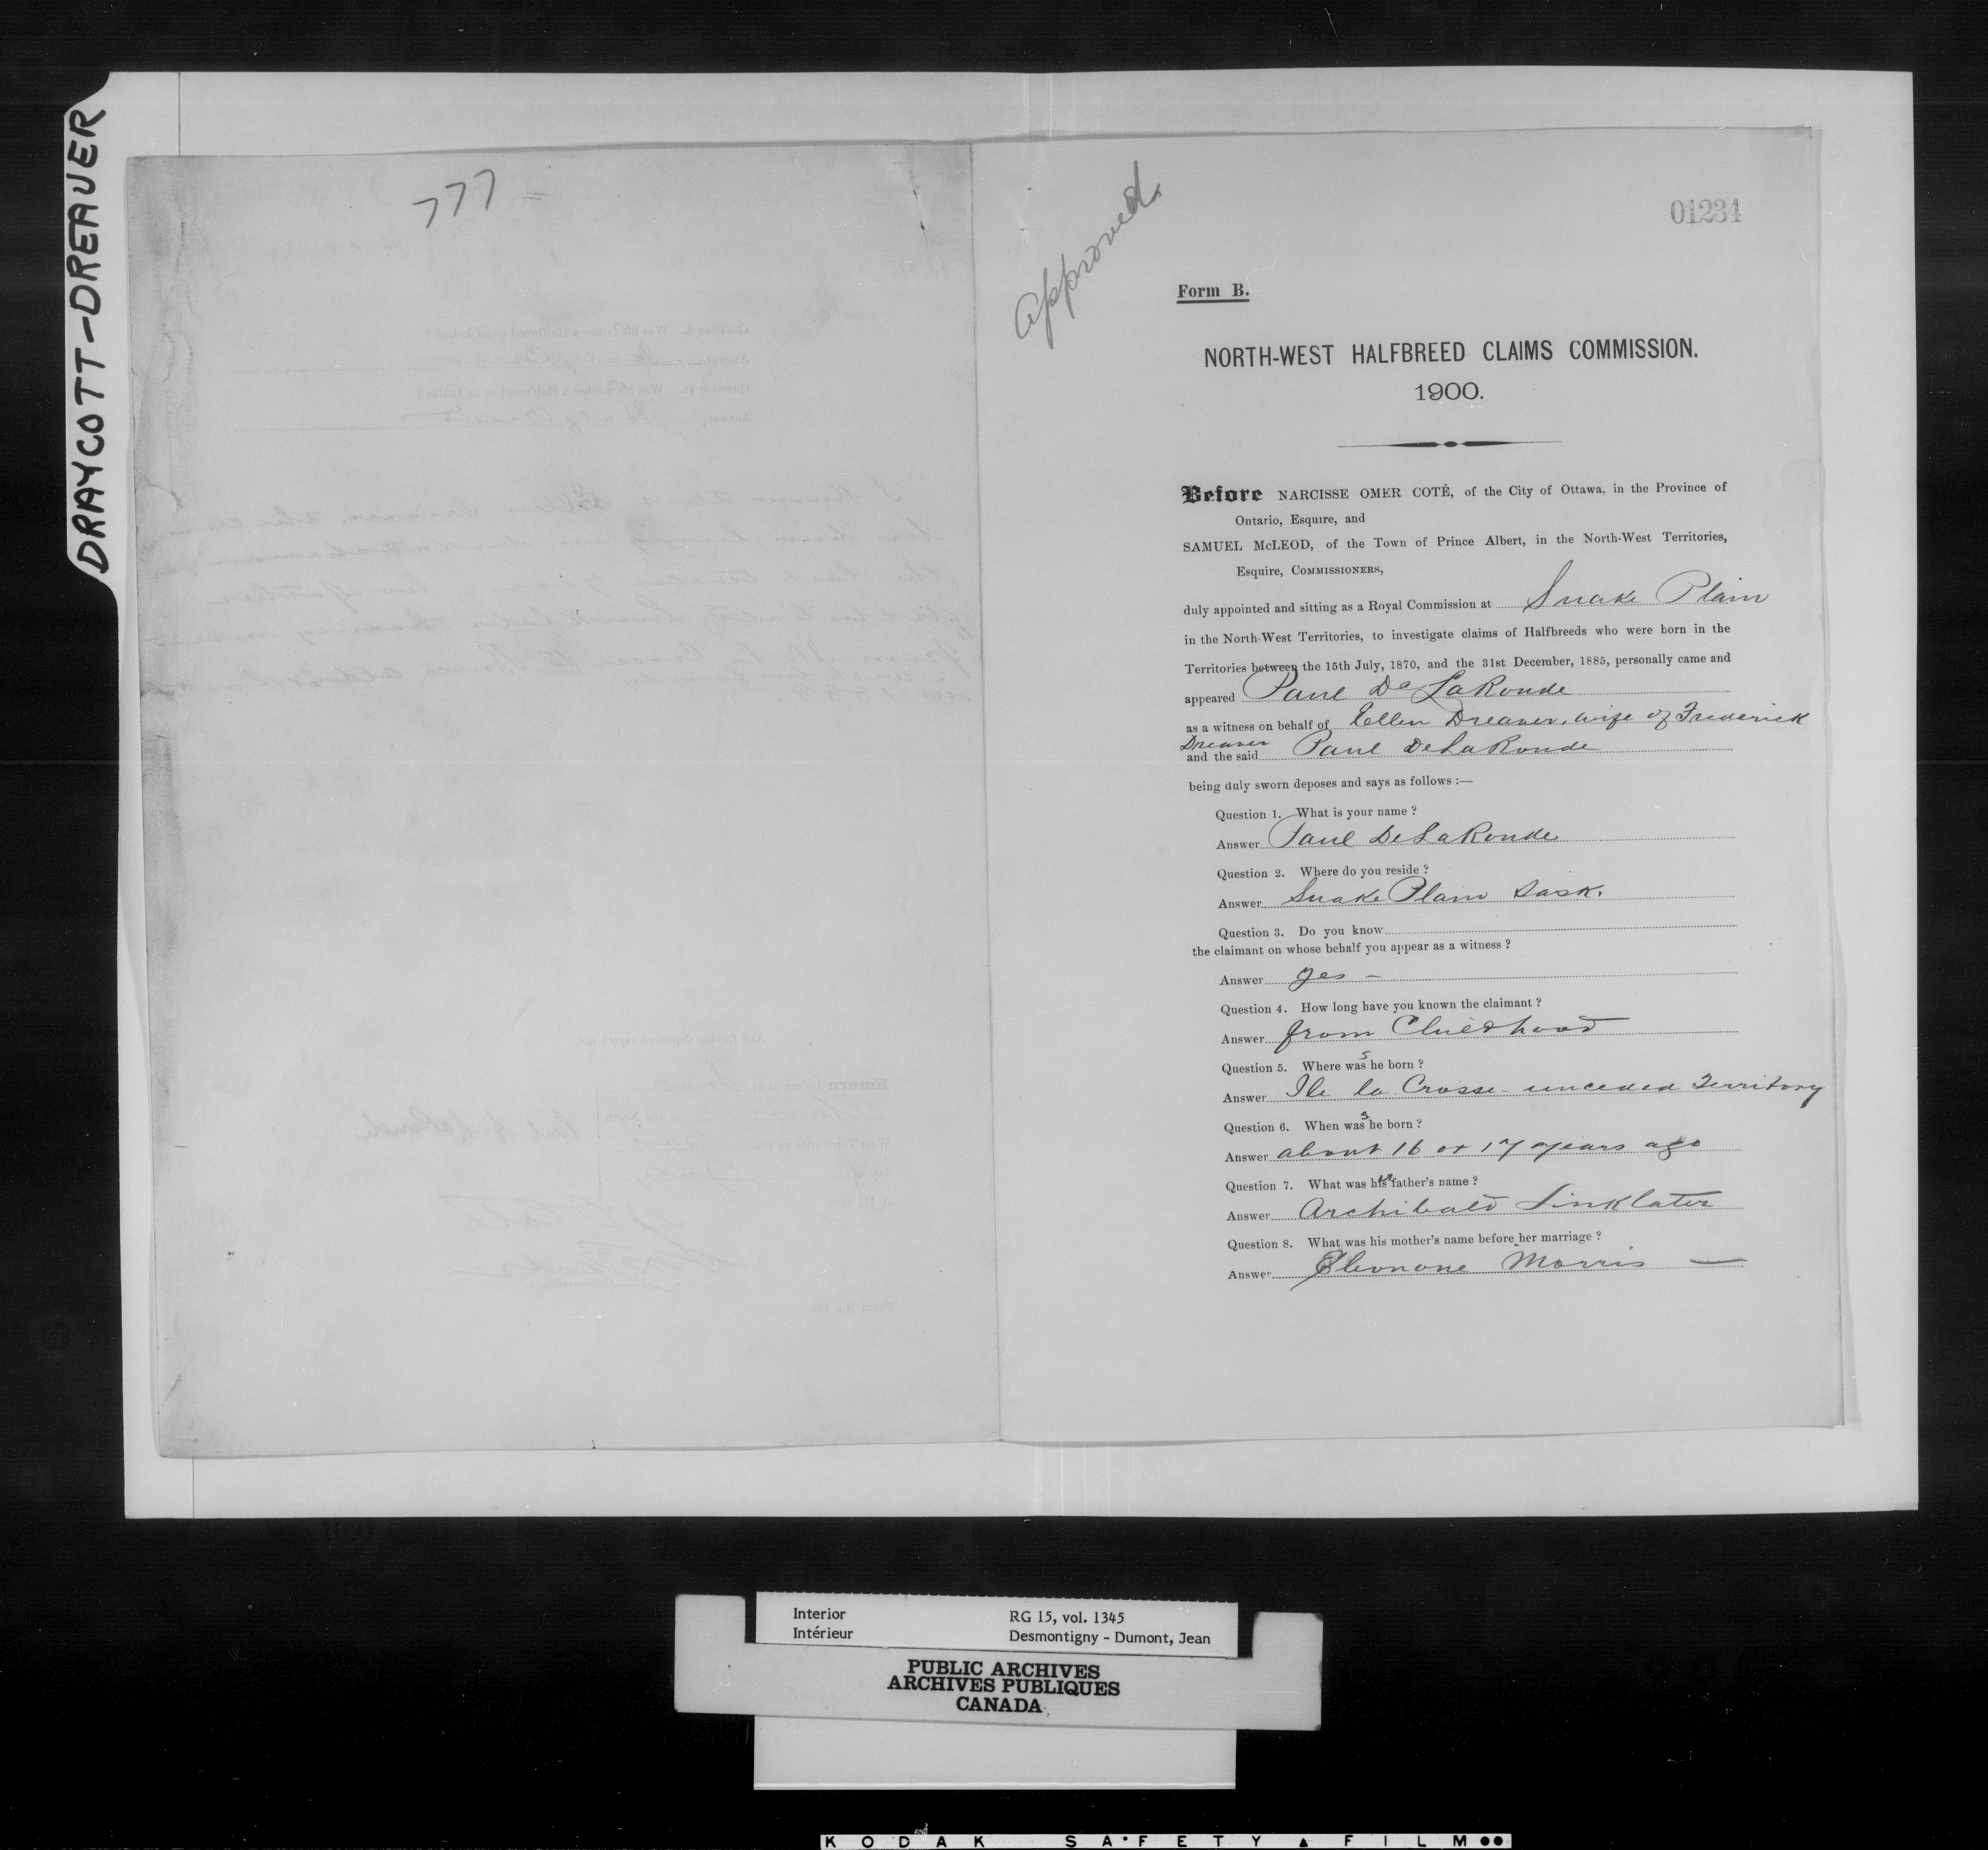 DRAYCOTT-DREAVER
777
Approved.
01234
Form B.
NORTH-WEST HALFBREED CLAIMS COMMISSION.
1900.
Before NARCISSE OMER COTÉ, of the City of Ottawa, in the Province of
Ontario, Esquire, and
SAMUEL McLEOD, of the Town of Prince Albert, in the North-West Territories,
Esquire, COMMISSIONERS,
duly appointed and sitting as a Royal Commission at Snake Plain
in the North-West Territories, to investigate claims of Halfbreeds who were born in the
Territories between the 15th July, 1870, and the 31st December, 1885, personally came and
appeared Paul De LaRonde
as a witness on behalf of Ellen Dreaver, wife of Frederick
Dreaver
and the said Paul DeLaRonde
being duly sworn deposes and says as follows :—
Question 1. What is your name ?
Answer Paul DeLaRonde
Question 2. Where do you reside ?
Answer Snake Plain Sask.
Question 3. Do you know
the claimant on whose behalf you appear as a witness ?
Answer yes –
Question 4. How long have you known the claimant ?
Answer from Childhood
Question 5. Where was s he born ?
Answer Ile la Crosse - unceded Territory
Question 6. When was s he born ?
Answer about 16 or 17 years ago
Question 7. What was his er father's name ?
Answer Archibald Linklater
Question 8. What was his mother's name before her marriage ?
Answer Morris —
Interior
Intérieur
RG 15, vol. 1345
Desmontigny - Dumont, Jean
PUBLIC ARCHIVES
ARCHIVES PUBLIQUES
CANADA
KODAK SAFETY FILM